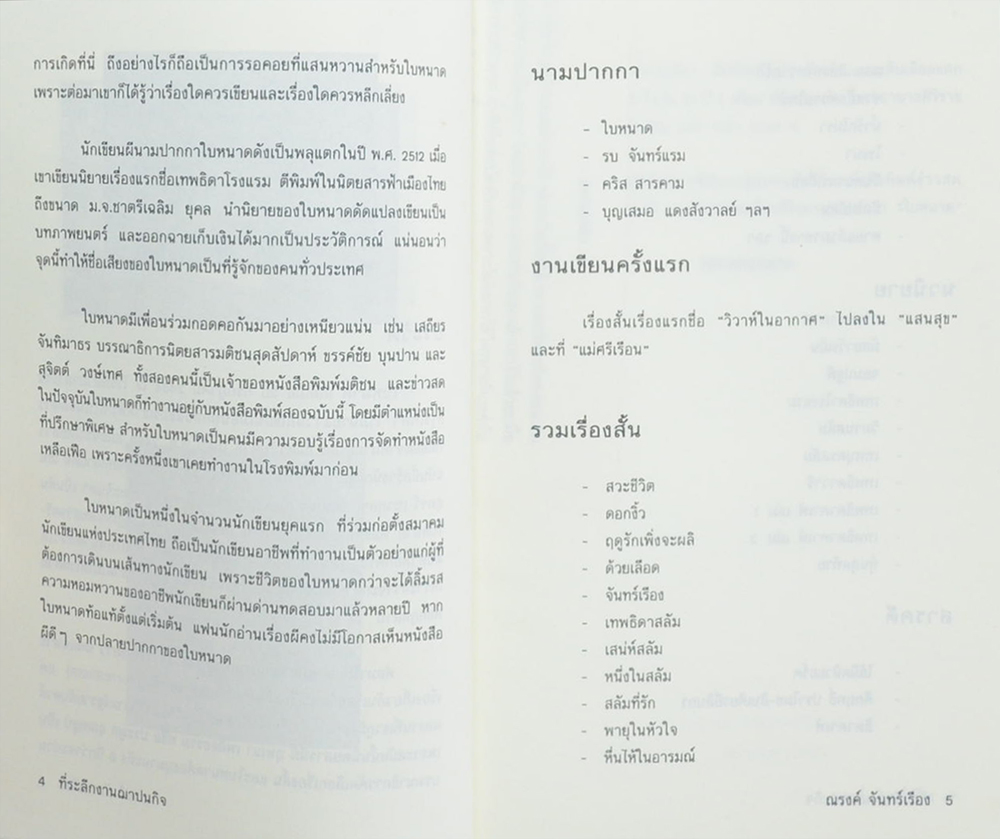 การเกิดที่นี่ ถึงอย่างไรก็ถือเป็นการรอคอยที่แสนหวานสำหรับใบหนาด
เพราะต่อมาเขาก็ได้รู้ว่าเรื่องใดควรเขียนและเรื่องใดควรหลีกเลี่ยง
นักเขียนผีนามปากกาใบหนาดดังเป็นพลุแตกในปี พ.ศ. 2512 เมื่อ
เขาเขียนนิยายเรื่องแรกชื่อเทพธิดาโรงแรม ตีพิมพ์ในนิตยสารฟ้าเมืองไทย
ถึงขนาด ม.จ.ชาตรีเฉลิม ยุคล นำนิยายของใบหนาดดัดแปลงเขียนเป็น
บทภาพยนตร์ และออกฉายเก็บเงินได้มากเป็นประวัติการณ์ แน่นอนว่า
จุดนี้ทำให้ชื่อเสียงของใบหนาดเป็นที่รู้จักของคนทั่วประเทศ
ใบหนาดมีเพื่อนร่วมกอดคอกันมาอย่างเหนียวแน่น เช่น เสถียร
จันทิมาธร บรรณาธิการนิตยสารมติชนสุดสัปดาห์ ขรรค์ชัย บุนปาน และ
สุจิตต์ วงษ์เทศ ทั้งสองคนนี้เป็นเจ้าของหนังสือพิมพ์มติชน และข่าวสด
ในปัจจุบันใบหนาดก็ทำงานอยู่กับหนังสือพิมพ์สองฉบับนี้ โดยมีตำแหน่งเป็น
ที่ปรึกษาพิเศษ สำหรับใบหนาดเป็นคนมีความรอบรู้เรื่องการจัดทำหนังสือ
เหลือเฟือ เพราะครั้งหนึ่งเขาเคยทำงานในโรงพิมพ์มาก่อน
ใบหนาดเป็นหนึ่งในจำนวนนักเขียนยุคแรก ที่ร่วมก่อตั้งสมาคม
นักเขียนแห่งประเทศไทย ถือเป็นนักเขียนอาชีพที่ทำงานเป็นตัวอย่างแก่ผู้ที่
ต้องการเดินบนเส้นทางนักเขียน เพราะชีวิตของใบหนาดกว่าจะได้ลิ้มรส
ความหอมหวานของอาชีพนักเขียนก็ผ่านด่านทดสอบมาแล้วหลายปี หาก
ใบหนาดท้อแท้ตั้งแต่เริ่มต้น แฟนนักอ่านเรื่องผีคงไม่มีโอกาสเห็นหนังสือ
ผีดีๆ จากปลายปากกาของใบหนาด
4 ที่ระลึกงานฌาปนกิจ
นามปากกา
- ใบหนาด
- รบ จันทร์แรม
- คริส สารคาม
- บุญเสมอ แดงสังวาลย์ ฯลฯ
งานเขียนครั้งแรก
เรื่องสั้นเรื่องแรกชื่อ "วิวาห์ในอากาศ" ไปลงใน "แสนสุข"
และที่ "แม่ศรีเรือน"
รวมเรื่องสั้น
- สวะชีวิต
- ดอกงิ้ว
- ฤดูรักเพิ่งจะผลิ
- ด้วยเลือด
- จันทร์เรือง
- เทพธิดาสลัม
- เสน่ห์สลัม
- หนึ่งในสลัม
- สลัมที่รัก
- พายุในหัวใจ
- หื่นไห้ในอารมณ์
ณรงค์ จันทร์เรือง 5